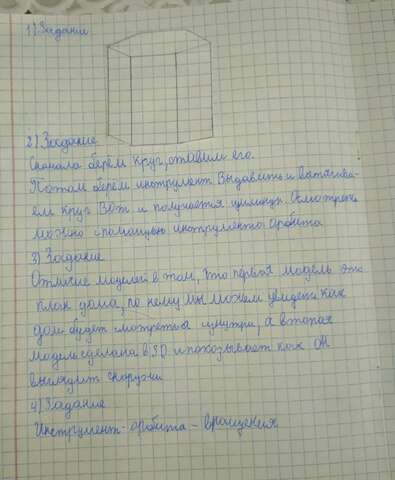 1) Задание
2) Задание
Сначала берем круг, ставим его.
Потом берем инструмент Выдавить и вытягива-
ем круг. Вот и получается цилиндр. Осмотреть
можно с помощью инструмента орбита
3) Задание
Отличие моделей в том, что первая модель это
план дома, по нему мы можем увидеть как
дом будет смотреться изнутри, а вторая
модель сделана в 3D и показывает как он
выглядит снаружи
4) Задание
Инструмент - орбита - вращения